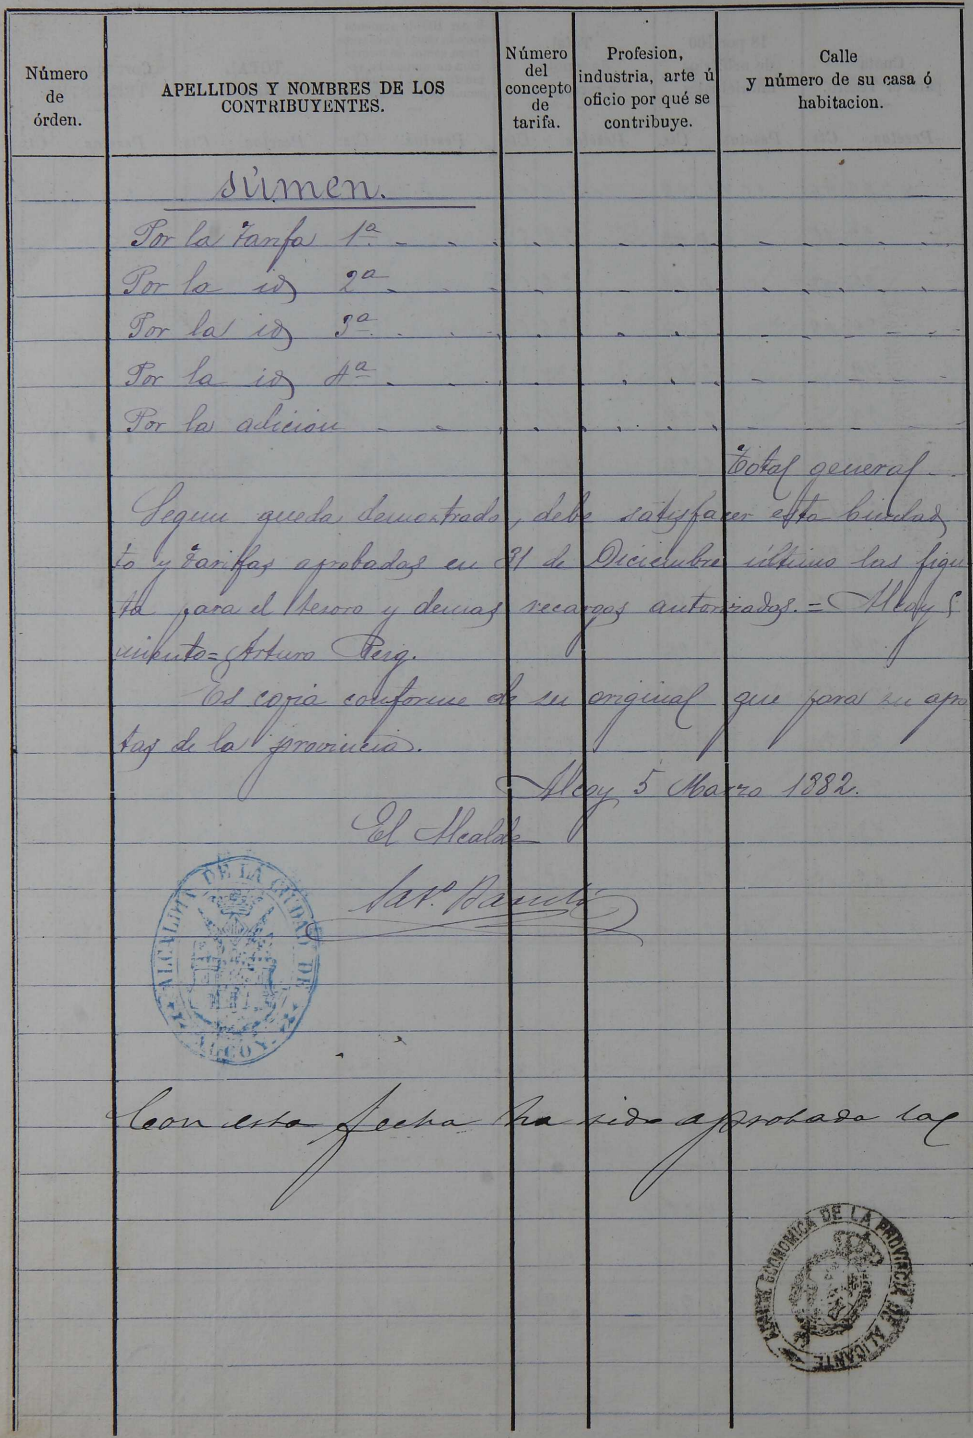 Número
de
órden.
APELLIDOS Y NOMBRES DE LOS
CONTRIBUYENTES.
Número
del
concepto
de
tarifa.
Profesion,
industria, arte ú
oficio por qué se
contribuye.
Calle
y número de su casa ó
habitacion.
súmen.
Por la tarifa 1ª
Por la id 2ª
Por la id 3ª
Por la id 4ª
Por la adicion
Total general
Segun queda demostrado, debe satisfacer esta Ciudad
to y tarifas aprobadas en 31 de Diciembre último las figu
ta para el tesoro y demas recargos autorizados. = Alcoy 5
miento = Arturo Reig.
Es copia conforme de su original que para su apro
tas de la provincia.
Alcoy 5 Marzo 1882.
El Alcalde
ALCALDIA DE LA CIUDAD DE
ALCOY
Con esta fecha ha sido aprobada la
ECONOMICA DE LA PROVINCIA DE ALICANTE